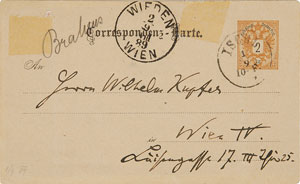 Brahms
WIEDEN
WIEN
Correspondenz-Karte.
2
An
Herrn Wilhelm Kupfer
Wien IV.
Luisengasse 17. III Thür 25.